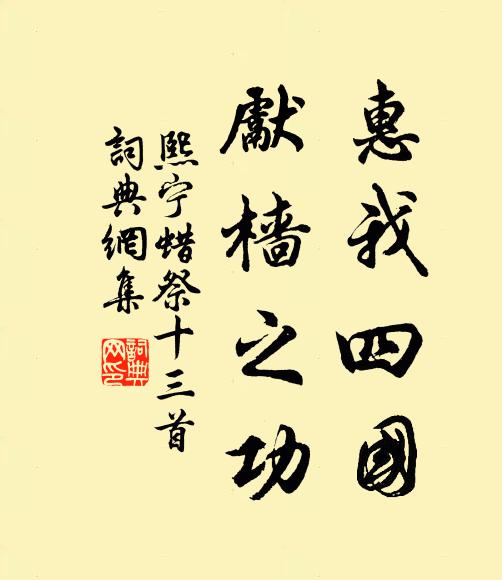 惠我四國
獻穡之功
熙宁蜡祭十三首
詞典網集
詞典
网印